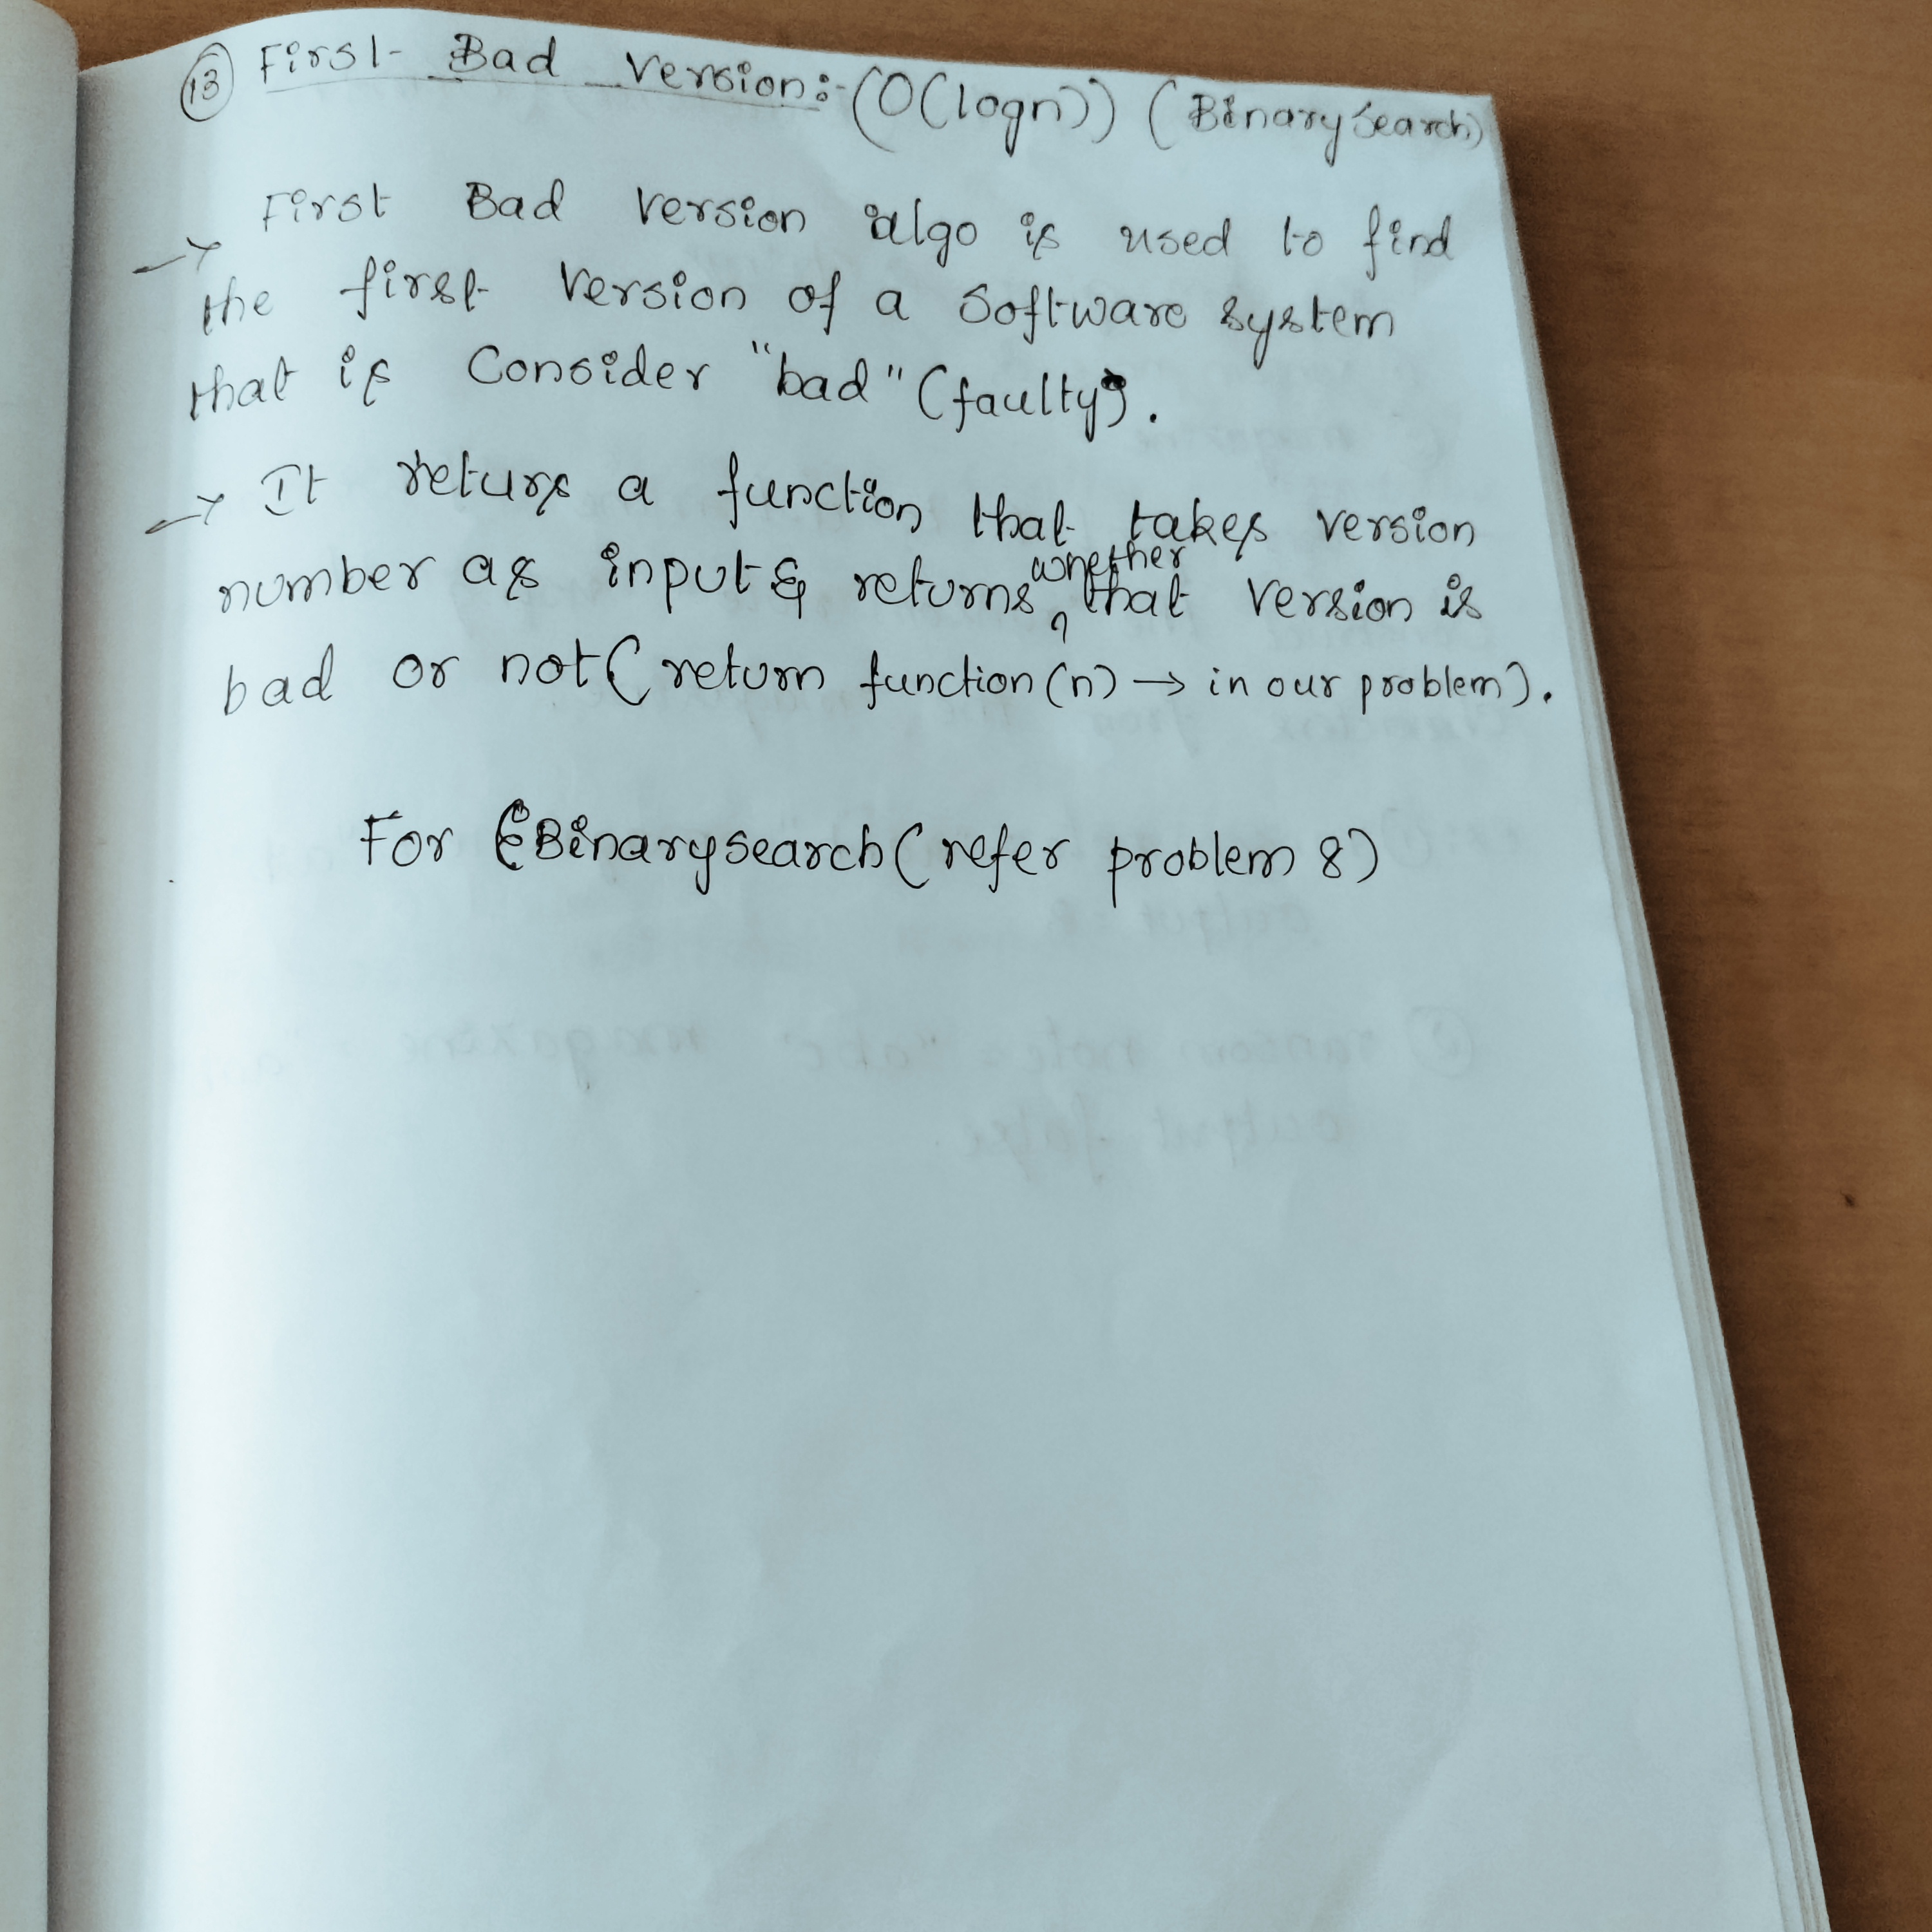 13 First Bad Version:- (O(logn)) (Binary Search)
→ First Bad Version algo is used to find
the first Version of a Software system
that is Consider "bad" (faulty).
→ It returs a function that takes version
number as input & returns whether that Version is
bad or not (return function(n) → in our problem).
For Binarysearch (refer problem 8)